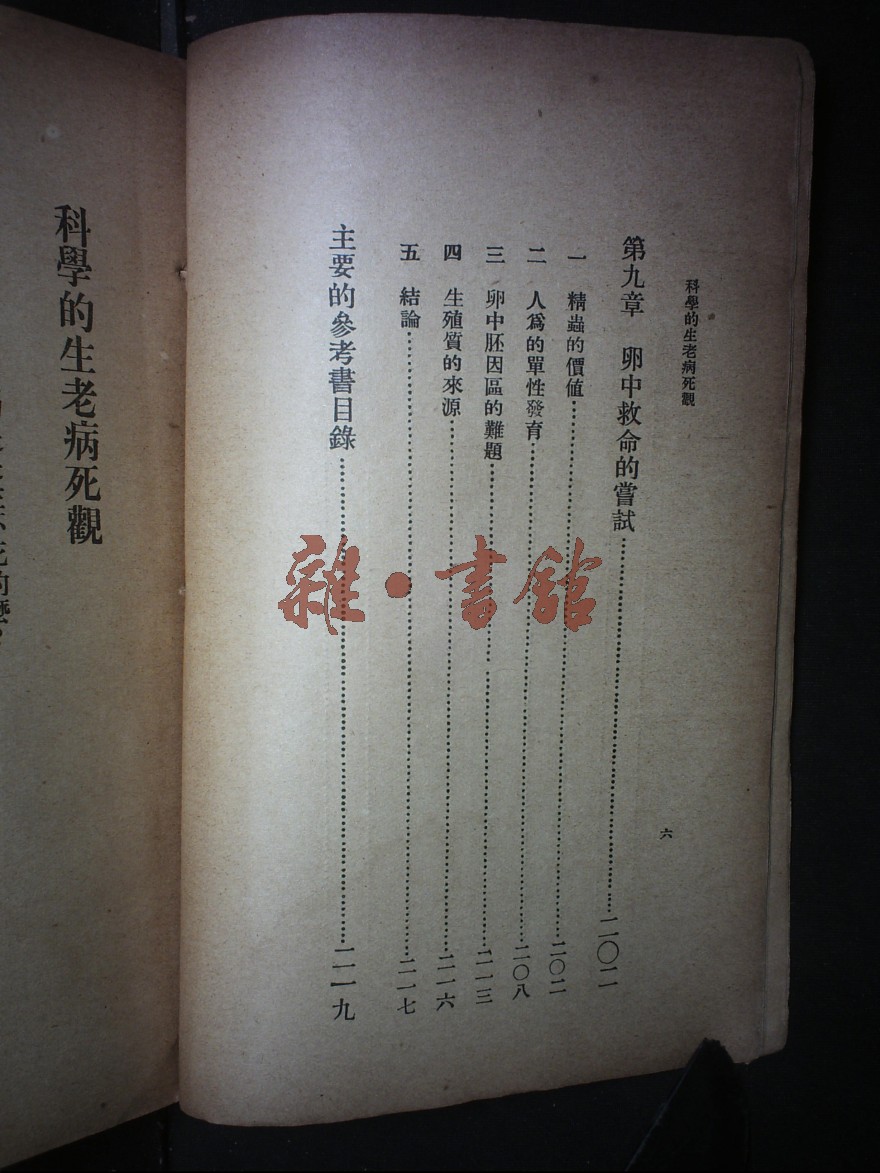 科學的生老病死觀
第九章　卵中救命的嘗試……二〇二
一　精蟲的價值……二〇二
二　人爲的單性發育……二〇八
三　卵中胚因區的難題……二一三
四　生殖質的來源……二一六
五　結論……二一七
主要的參考書目錄……二一九
六
科學的生老病死觀
雜·書館